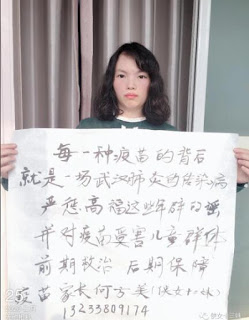 每一种疫苗的背后
就是一场武汉肺炎的传染病
严惩高福这些年的
并对疫苗受害儿童群体
前期救治 后期保障
疫苗家长何方美(十三妹)
13233809174